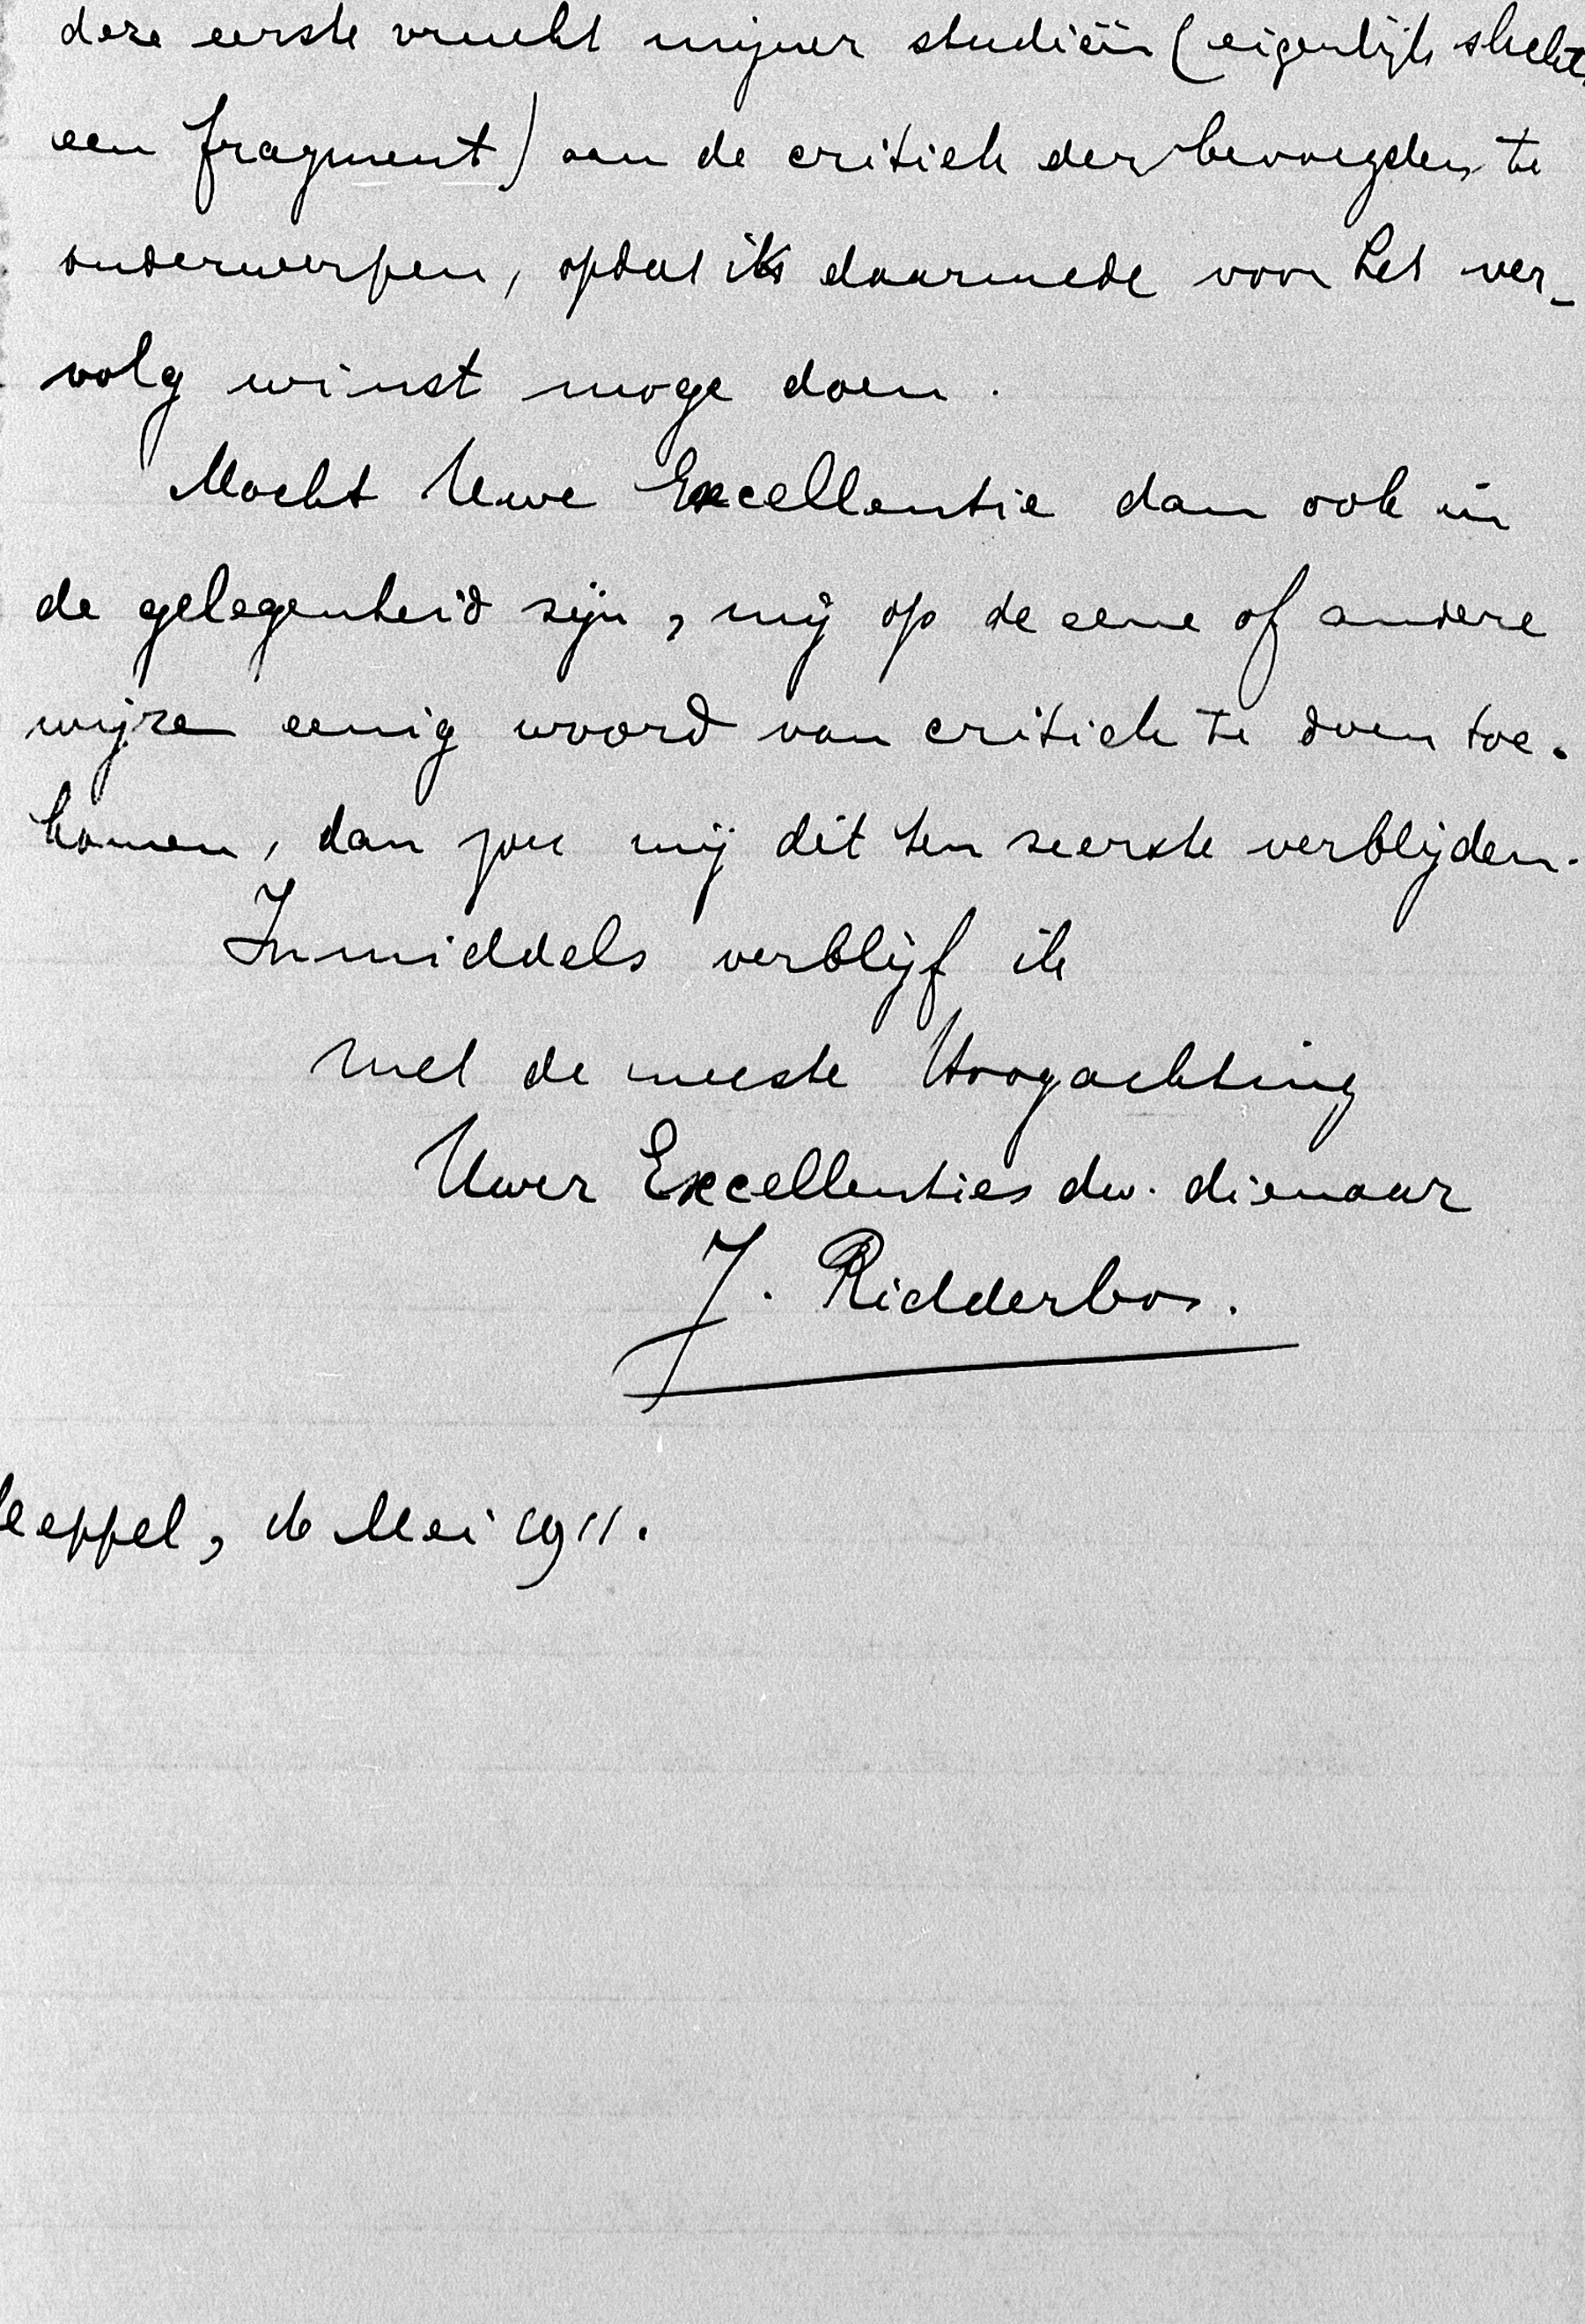 deze eerste vrucht mijner studiën (eigenlijk slechts
een fragment) aan de critiek der bevoegden te
onderwerpen, opdat ik daarmede voor het ver-
volg winst moge doen.
Mocht Uwe Excellentie dan ook in
de gelegenheid zijn, mij op de eene of andere
wijze eenig woord van critiek te doen toe-
komen, dan zou mij dit ten zeerste verblijden.
Inmiddels verblijf ik
met de meeste Hoogachting
Uwer Excellenties dw. dienaar
J. Ridderbos.
eppel, Mei 1911.